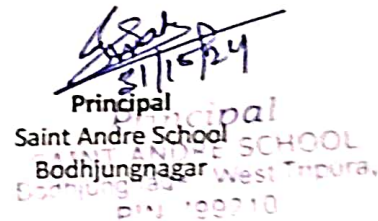 31/15/24
Principal
Saint Andre School
Bodhjungnagar
Principal
SAINT ANDRE SCHOOL
Bodhjungnagar West Tripura,
PIN 799210